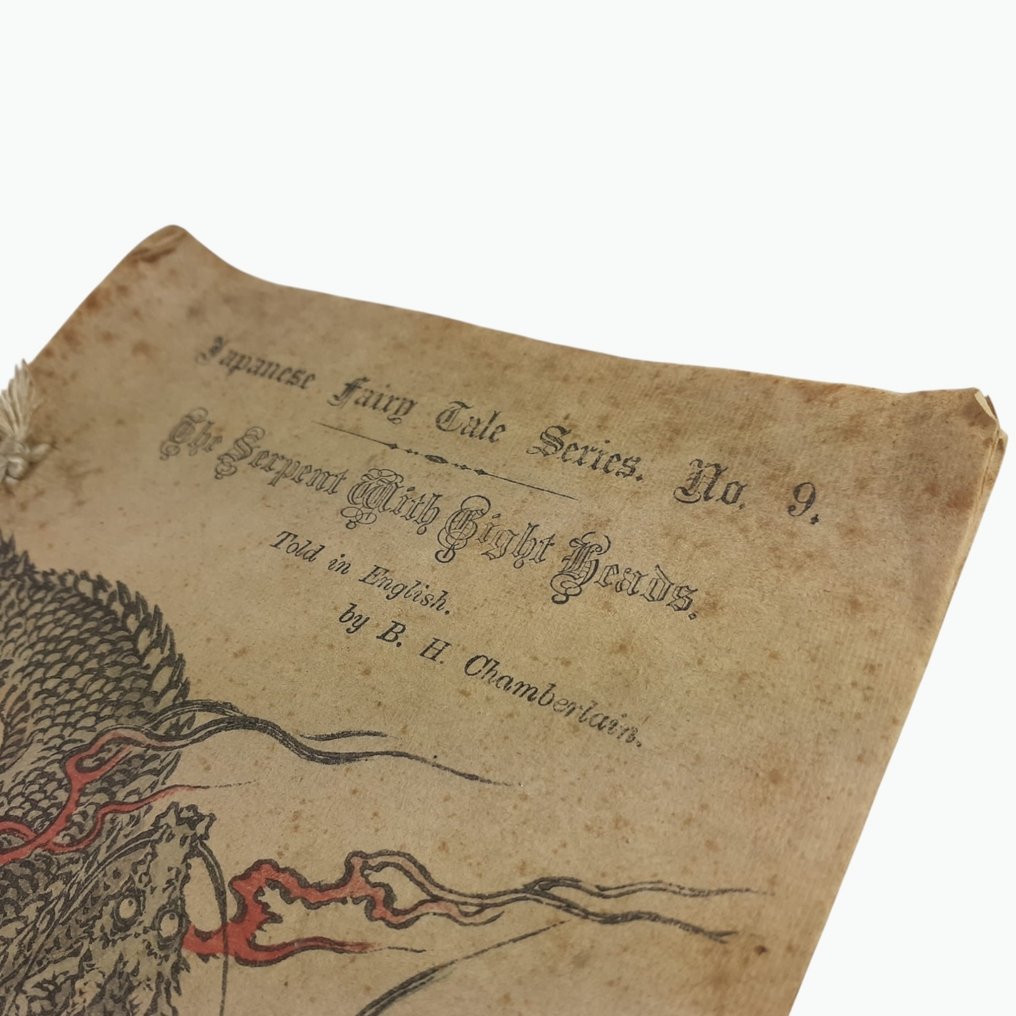 Japanese Fairy Tale Series. No. 9.
The Serpent With Eight Heads.
Told in English.
by B. H. Chamberlain.